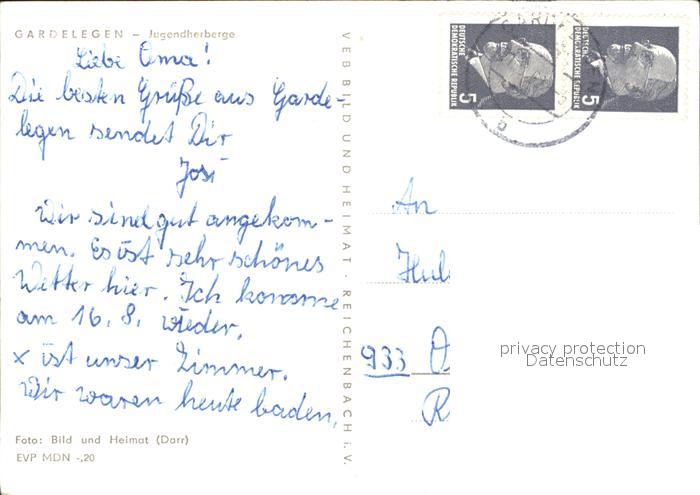 GARDELEGEN – Jugendherberge
Liebe Oma!
Die besten Grüße aus Garde-
legen sendet Dir
Josi
Wir sind gut angekom-
men. Es ist sehr schönes
Wetter hier. Ich komme
am 16. 8. wieder.
x ist unser Zimmer.
Wir waren heute baden.
Foto: Bild und Heimat (Darr)
EVP MDN -,20
VEB BILD UND HEIMAT · REICHENBACH i. V.
DEUTSCHE
DEMOKRATISCHE REPUBLIK
5
DEUTSCHE
DEMOKRATISCHE REPUBLIK
5
An
933
privacy protection
Datenschutz